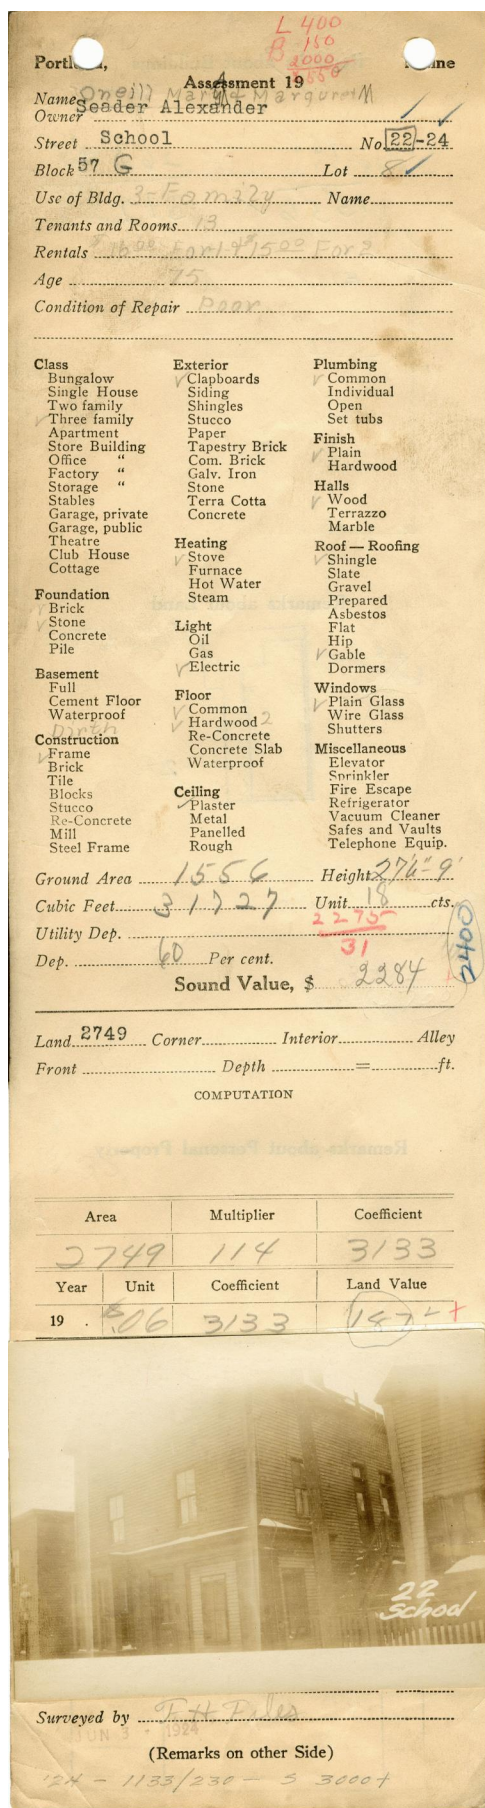 L 400
B 150
2000
2550
Portland, Maine
Assessment 19
Name Oneill Mary & Marguret M
Seader Alexander
Owner
Street School No. 22-24
Block 57 G Lot 8
Use of Bldg. 3-Family Name
Tenants and Rooms 13
Rentals For 1 & 15 00 For 2
Age 75
Condition of Repair Poor
Class
Bungalow
Single House
Two family
✓ Three family
Apartment
Store Building
Office "
Factory "
Storage "
Stables
Garage, private
Garage, public
Theatre
Club House
Cottage
Foundation
✓ Brick
✓ Stone
Concrete
Pile
Basement
Full
Cement Floor
Waterproof
Dirth
Construction
✓ Frame
Brick
Tile
Blocks
Stucco
Re-Concrete
Mill
Steel Frame
Exterior
✓ Clapboards
Siding
Shingles
Stucco
Paper
Tapestry Brick
Com. Brick
Galv. Iron
Stone
Terra Cotta
Concrete
Heating
✓ Stove
Furnace
Hot Water
Steam
Light
Oil
Gas
✓ Electric
Floor
✓ Common
✓ Hardwood 2
Re-Concrete
Concrete Slab
Waterproof
Ceiling
✓ Plaster
Metal
Panelled
Rough
Plumbing
✓ Common
Individual
Open
Set tubs
Finish
✓ Plain
Hardwood
Halls
✓ Wood
Terrazzo
Marble
Roof — Roofing
✓ Shingle
Slate
Gravel
Prepared
Asbestos
Flat
Hip
✓ Gable
Dormers
Windows
✓ Plain Glass
Wire Glass
Shutters
Miscellaneous
Elevator
Sprinkler
Fire Escape
Refrigerator
Vacuum Cleaner
Safes and Vaults
Telephone Equip.
Ground Area 1556 Height
Cubic Feet 31727 Unit 18 cts.
2275
Utility Dep.
31
Dep. 60 Per cent.
2400
Sound Value, $ 2284
Land 2749 Corner Interior Alley
Front Depth = ft.
COMPUTATION
Area Multiplier Coefficient
2749 114 3133
Year Unit Coefficient Land Value
19 . .06 3133 187 +
22
School
Surveyed by F H Files
JUN 3 - 1924
(Remarks on other Side)
'24 - 1133/230 - S 3000+